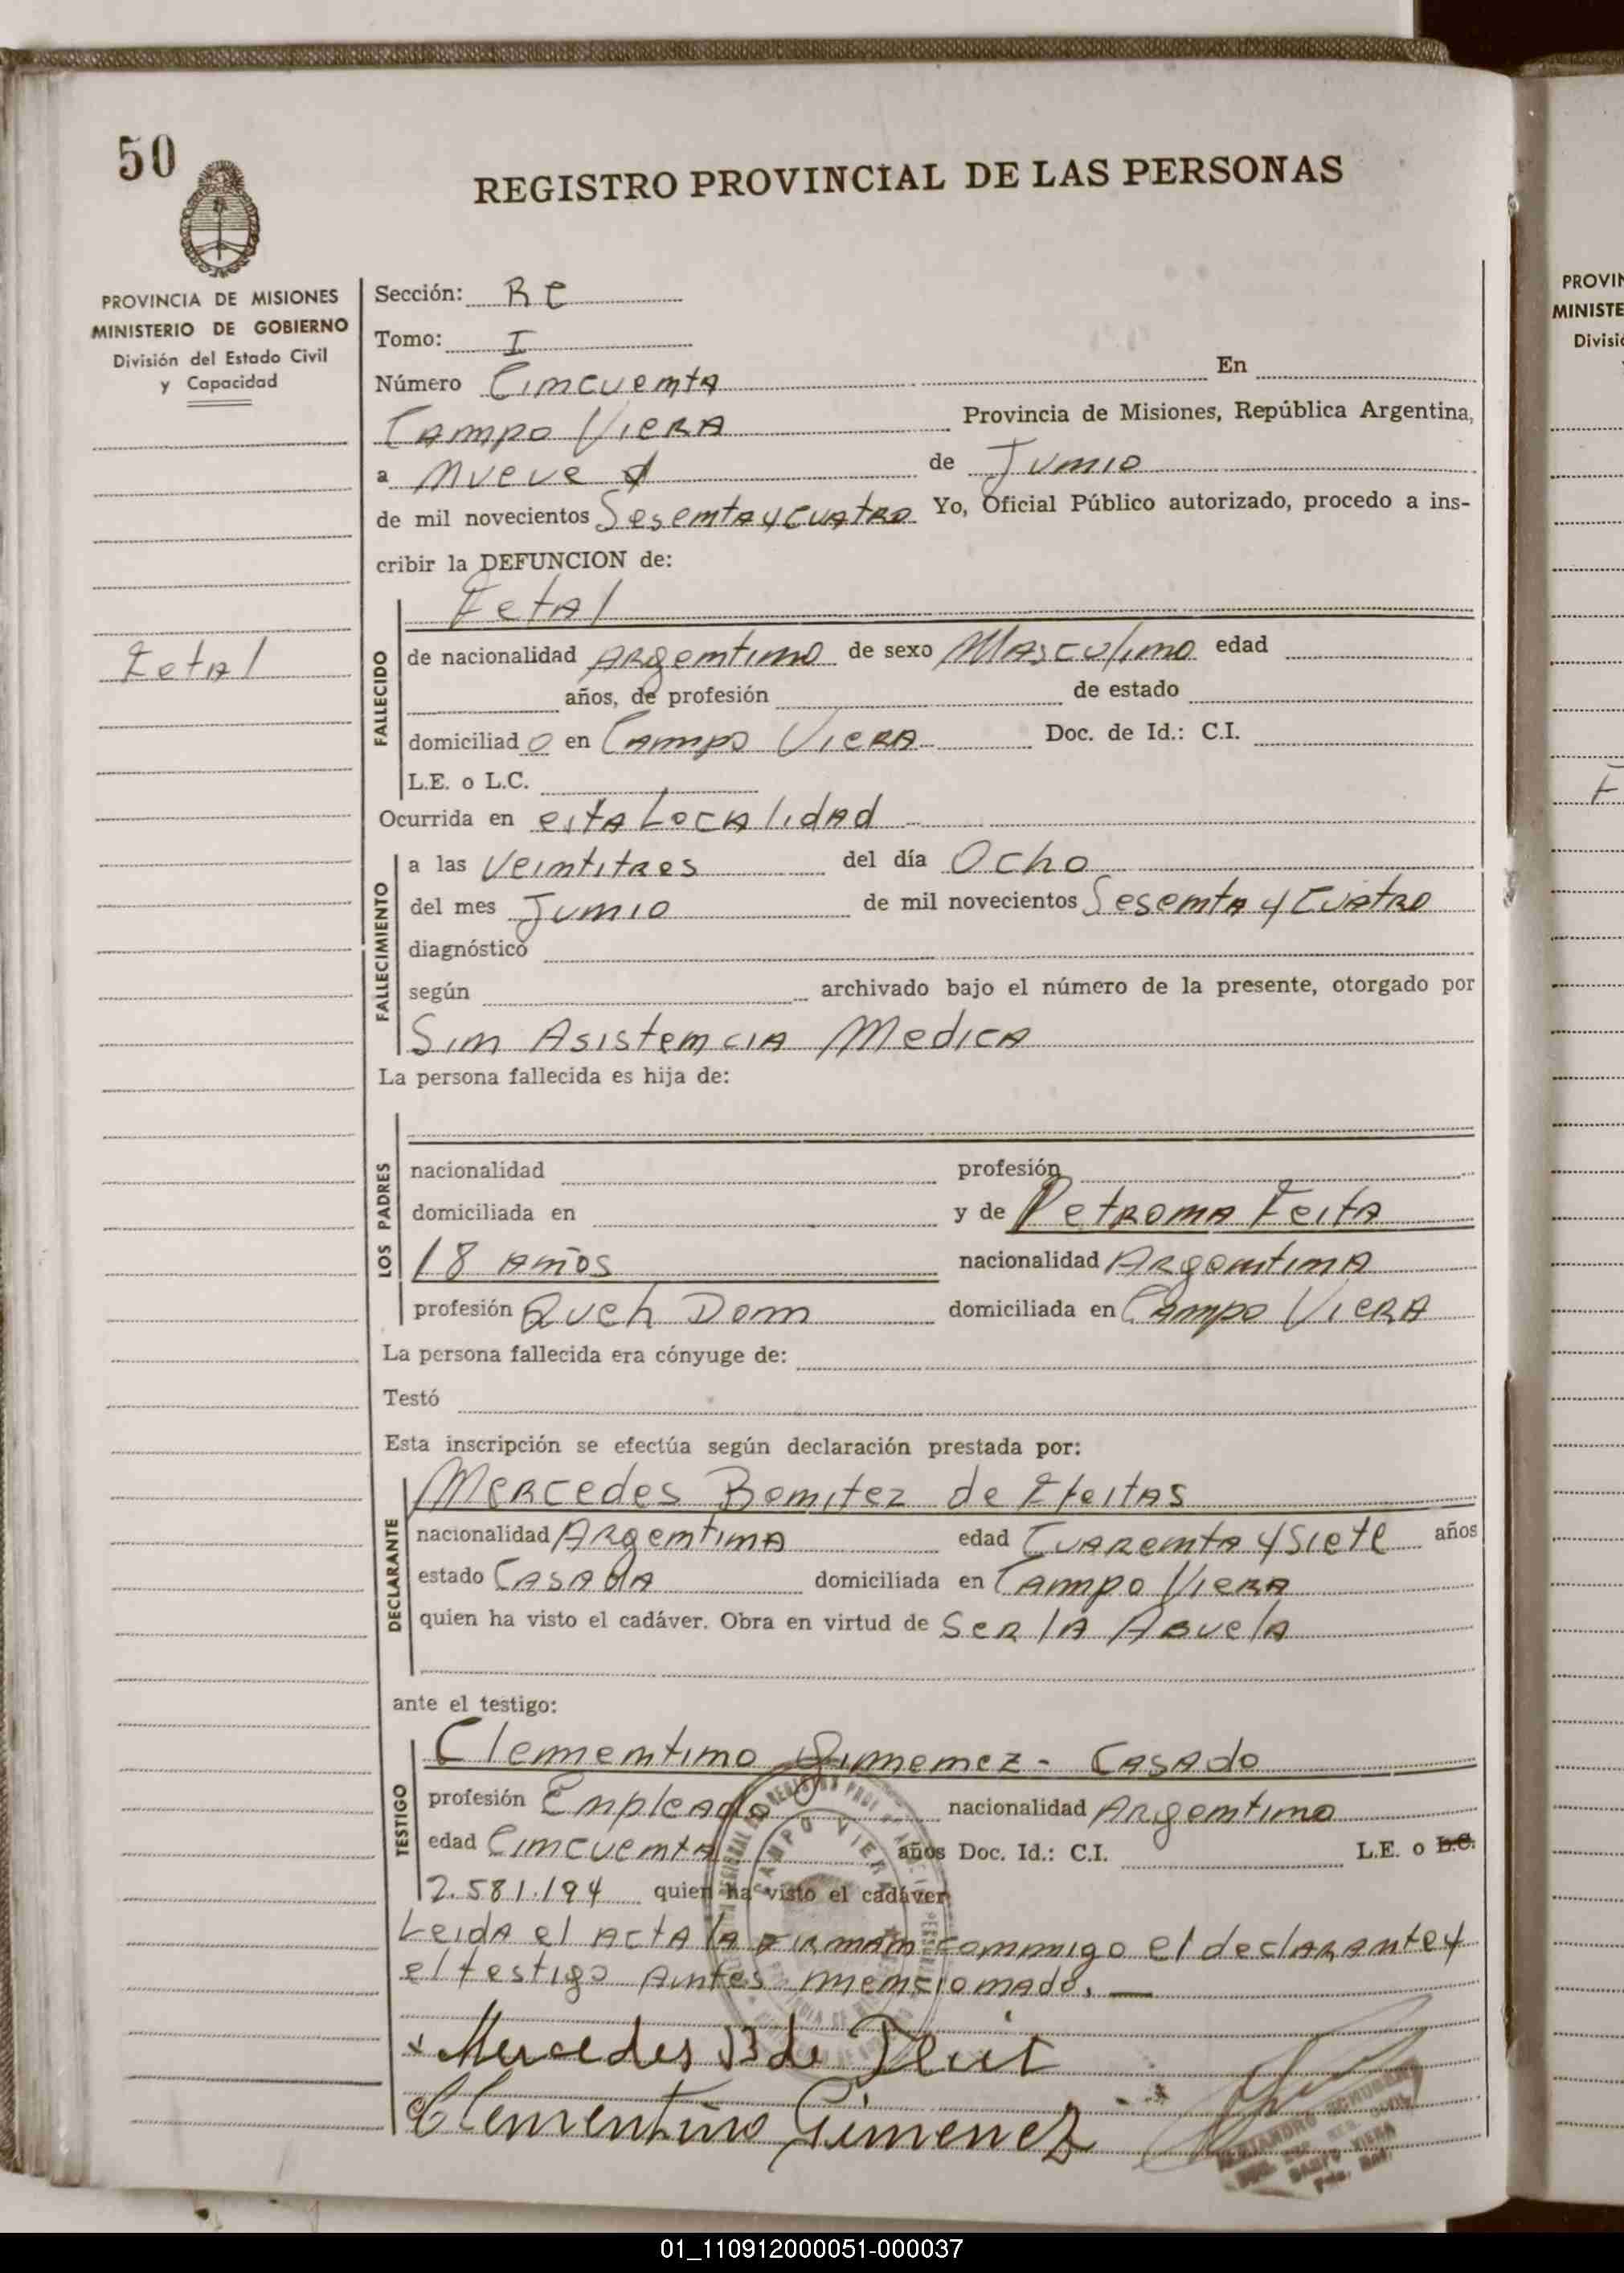 50
REGISTRO PROVINCIAL DE LAS PERSONAS
PROVINCIA DE MISIONES
MINISTERIO DE GOBIERNO
División del Estado Civil
y Capacidad
Sección: R C
Tomo: I
Número Cincuenta En
Campo Viera Provincia de Misiones, República Argentina,
a nueve de Junio
de mil novecientos Sesenta y cuatro Yo, Oficial Público autorizado, procedo a ins-
cribir la DEFUNCION de:
Fetal
Fetal
FALLECIDO
de nacionalidad Argentino de sexo Masculino edad
años, de profesión de estado
domiciliado en Campo Viera Doc. de Id.: C.I.
L.E. o L.C.
Ocurrida en esta Localidad
FALLECIMIENTO
a las Veintitres del día Ocho
del mes Junio de mil novecientos Sesenta y Cuatro
diagnóstico
según archivado bajo el número de la presente, otorgado por
Sin Asistencia Medica
La persona fallecida es hija de:
LOS PADRES
nacionalidad profesión
domiciliada en y de Petrona Feita
18 años nacionalidad Argentina
profesión Queh Dom domiciliada en Campo Viera
La persona fallecida era cónyuge de:
Testó
Esta inscripción se efectúa según declaración prestada por:
DECLARANTE
Mercedes Benitez de Efeitas
nacionalidad Argentina edad Cuarenta y Siete años
estado Casada domiciliada en Campo Viera
quien ha visto el cadáver. Obra en virtud de Ser la Abuela
ante el testigo:
TESTIGO
Clementino Gimenez - Casado
profesión Empleado nacionalidad Argentino
edad Cincuenta años Doc. Id.: C.I. L.E. o L.C.
2.581.194 quien ha visto el cadáver
Leida el acta la firman conmigo el declarante y
el testigo antes mencionado. —
Mercedes B de
Clementino Gimenez
CAMPO VIERA
PROVIN
MINISTE
Divisió
01_110912000051-000037